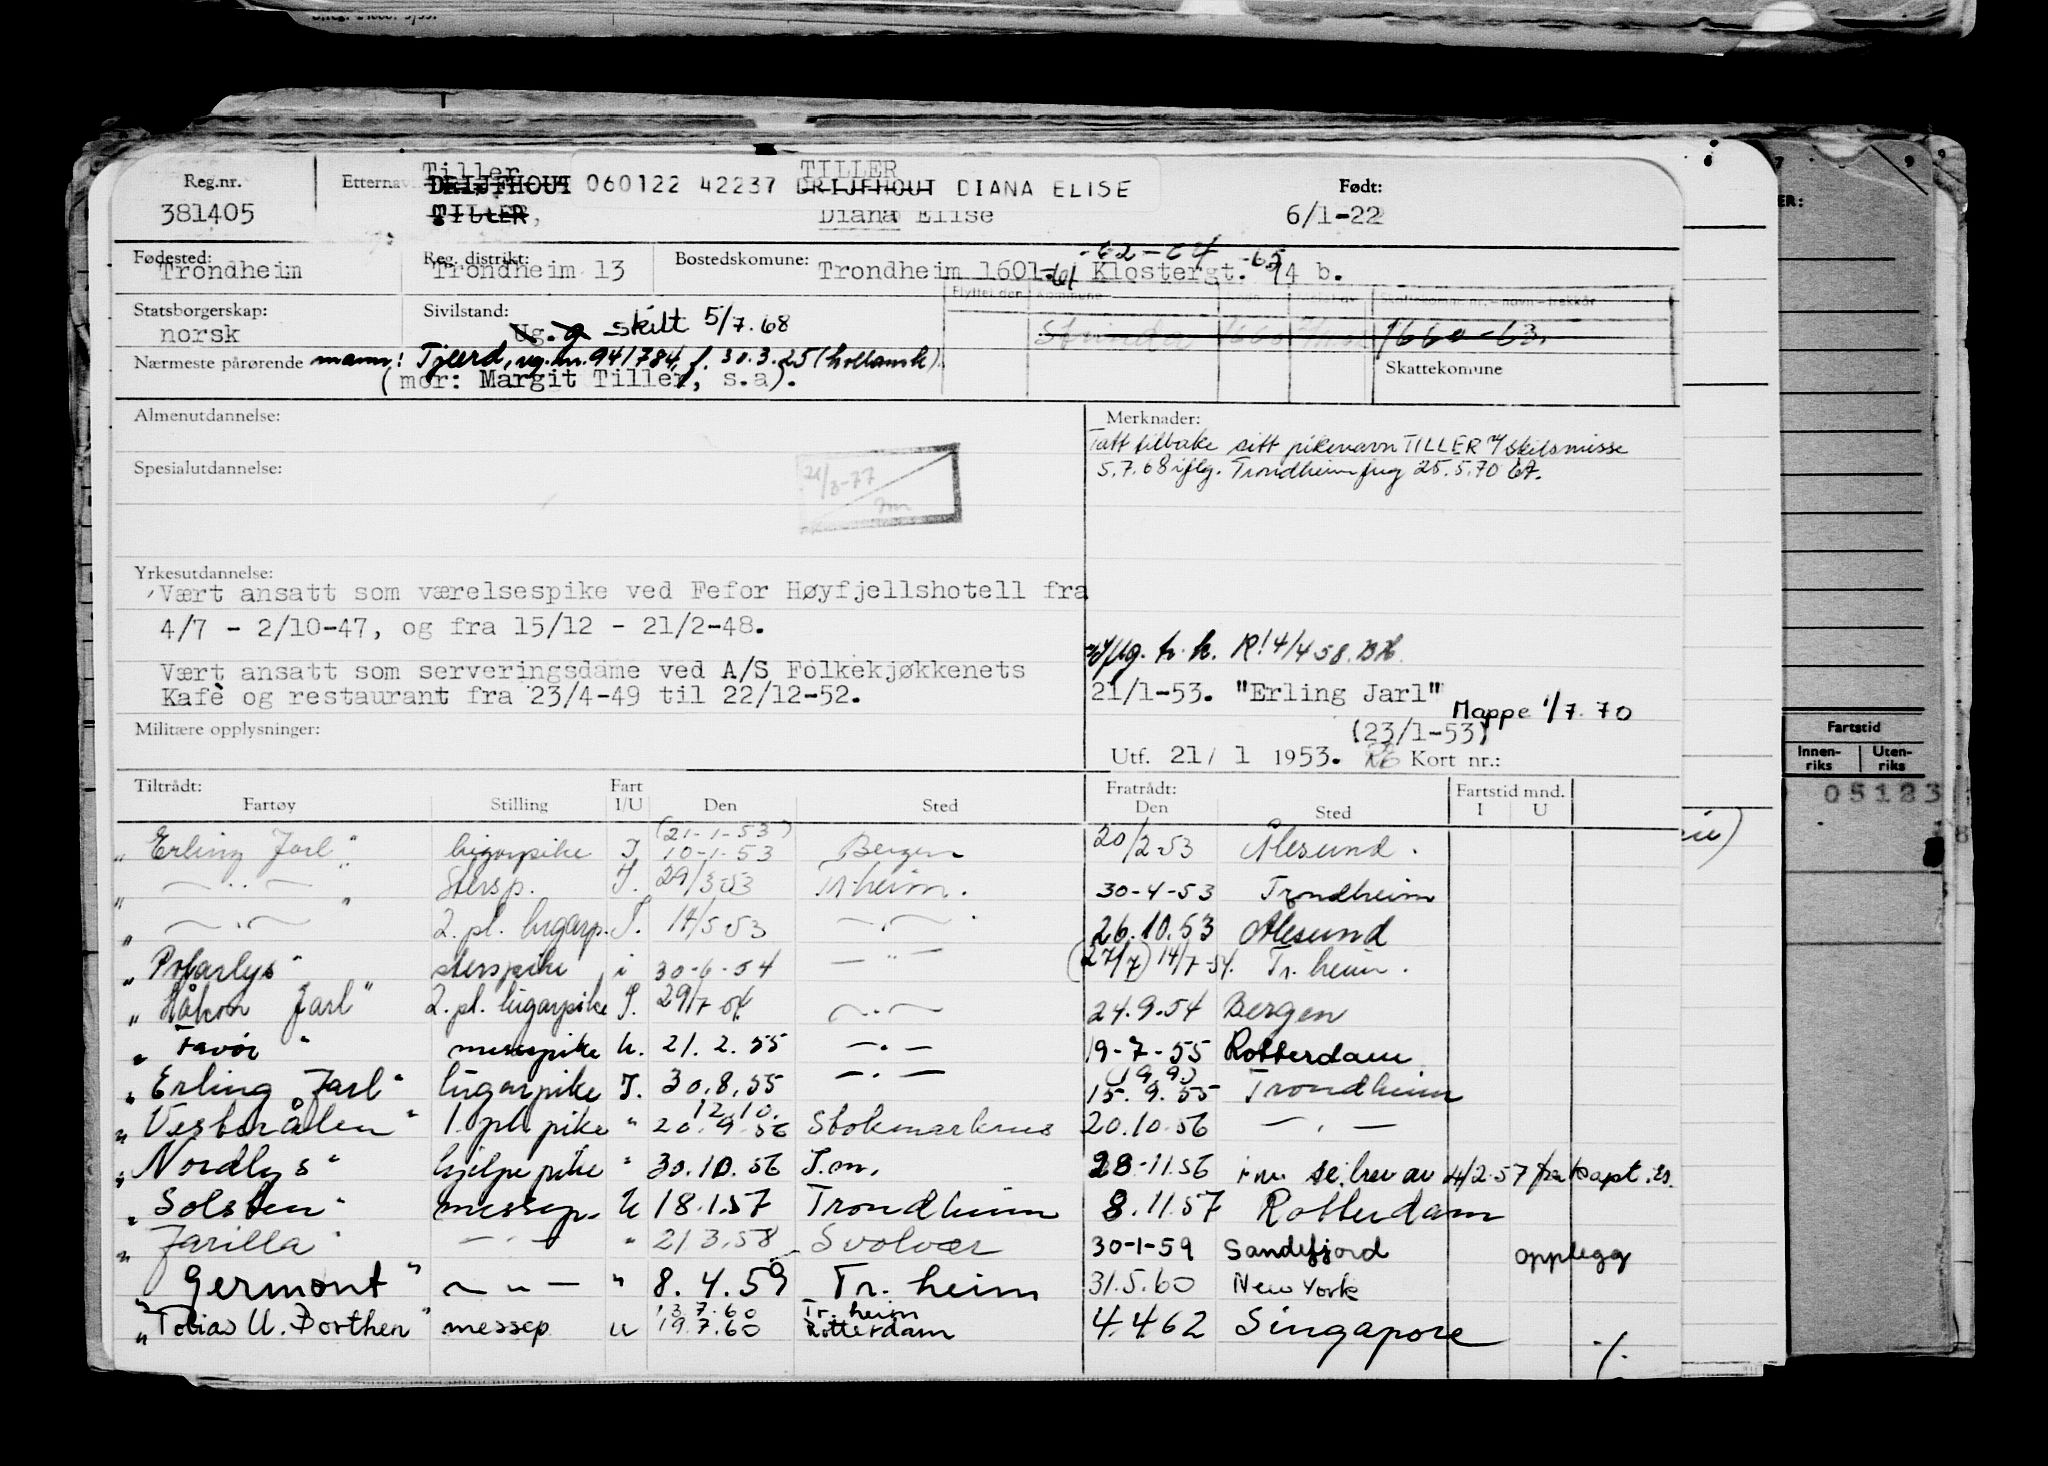 Reg.nr. 381405
Tiller TILLER
Etternavn DRIJFHOUT 060122 42237 DRIJFHOUT DIANA ELISE
TILLER, Diana Elise
Født: 6/1-22
-62-64 -65
Fødested: Trondheim Reg. distrikt: Trondheim 13 Bostedskommune: Trondheim 1601-61 Klostergt. 74 b.
Statsborgerskap: norsk Sivilstand: Ug. g skilt 5/7.68
Strinda 1660 1660-63.
Skattekommune
Nærmeste pårørende mann: Tjeerd, reg.nr. 941784, f. 30.3.25 (hollansk)
(mor: Margit Tiller, s.a).
Almenutdannelse:
Merknader:
Tatt tilbake sitt pikenavn TILLER v/skilsmisse
5.7.68 iflg. Trondheim 25.5.70
Spesialutdannelse:
21/3-77
Yrkesutdannelse:
Vært ansatt som værelsespike ved Fefor Høyfjellshotell fra
4/7 - 2/10-47, og fra 15/12 - 21/2-48.
Vært ansatt som serveringsdame ved A/S Folkekjøkkenets
Kafè og restaurant fra 23/4-49 til 22/12-52.
iflg. h.k. R! 4/4 58. BH.
21/1-53. "Erling Jarl"
Mappe 1/7.70
(23/1-53)
Militære opplysninger:
Utf. 21/ 1 1953. Kort nr.:
Tiltrådt: Fratrådt:
Fartøy Stilling Fart I/U Den Sted Den Sted Fartstid mnd. I U
(21-1-53)
"Erling Jarl" lugarpike I 10-1-53 Bergen 20/2-53 Ålesund.
" —"— " stersp. I. 29/3-53 Tr.heim. 30-4-53 Trondheim
" —"— 2. pl. lugarp. I. 14/5-53 —"— 26.10.53 Ålesund
"Polarlys" sterspike i 30-6-54 —"— (27/7) 14/7-54. Tr. heim.
"Håkon Jarl" 2. pl. lugarpike I. 29/7-54 —"— 24.9.54 Bergen
"Favör" messpike U. 21.2.55 —"— 19-7-55 Rotterdam
(9.9)
"Erling Jarl" lugarpike I. 30.8.55 —"— 15.9.55 Trondheim
12.10.
"Vesterålen" 1. pl. pike " 20.9.56 Stokmarknes 20.10.56 —"—
"Nordlys" hjelpepike " 30.10.56 T.m. 28-11.56 se. brev av 4/2-57 fra kapt.
"Solsten" messep. U 18.1.57 Trondheim 8.11.57 Rotterdam
"Jarilla" —"— " 21.3.58 Svolvær 30-1-59 Sandefjord opplegg
"Germont" —"— " 8.4.59 Tr. heim 31.5.60 New York
13.7.60 Tr. heim
"Tobias U. Borthen" messep U 19.7.60 Rotterdam 4.4.62 Singapore
./.
Fartstid
Innenriks Utenriks
05123